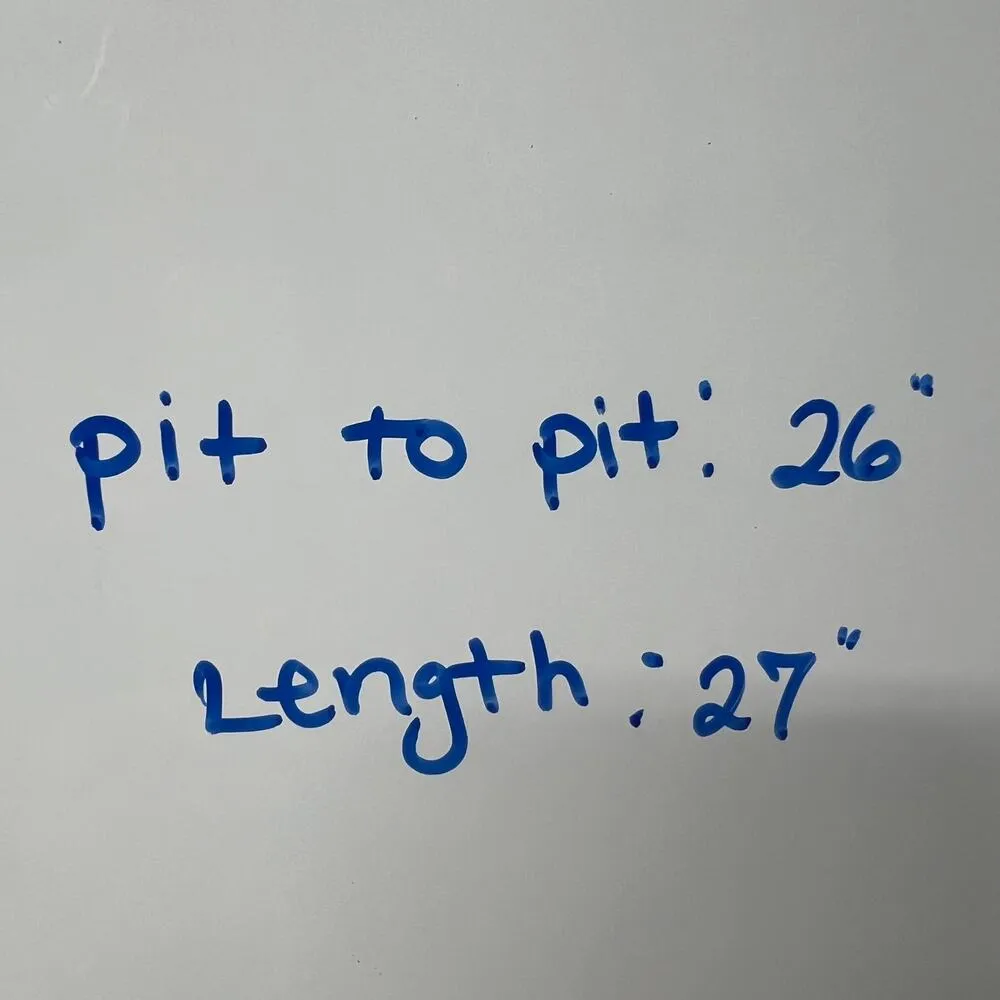 pit to pit: 26"
Length: 27"